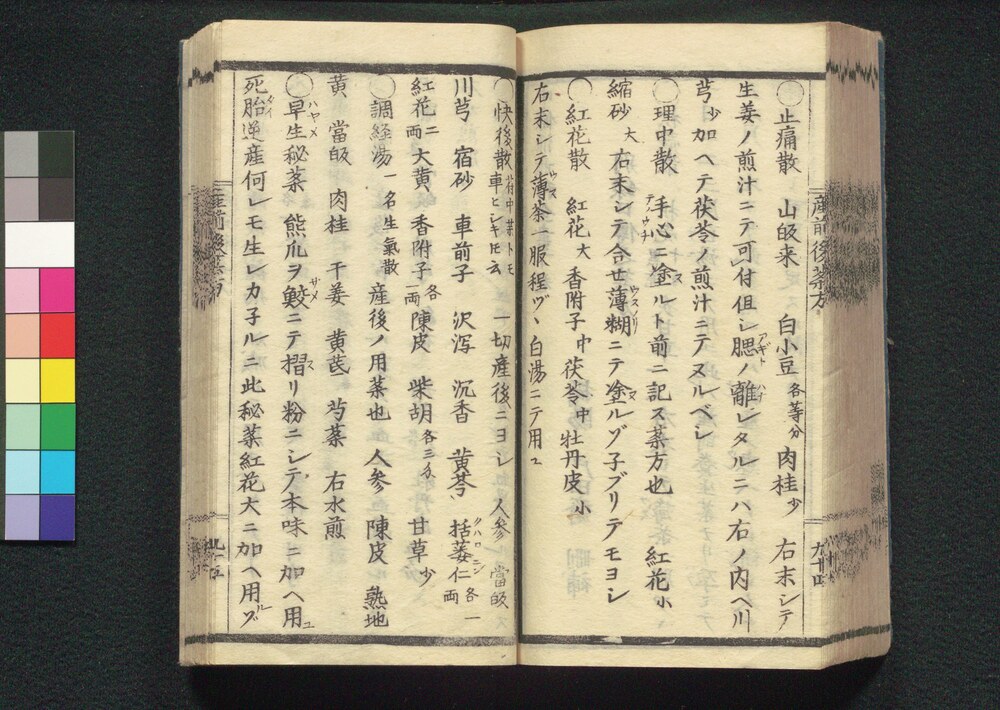 産前後茶方
九十四
〇止痛散　山皈来　白小豆各等分　肉桂少　右末シテ
生姜ノ煎汁ニテ可付但シ腮アギトノ離ハナレタルニハ右ノ内ヘ川
芎少加ヘテ茯苓ノ煎汁ニテヌルベシ
〇理中散　手心テノウチニ塗スルト前ニ記ス薬方也　紅花小
縮砂大　右末シテ合セ薄糊ウスノリニテ塗ヌルゾ子ブリテモヨシ
〇紅花散　紅花大　香附子中　茯苓中　牡丹皮小
右末シテ薄ウス茶一服程ヅヽ白湯ニテ用ユ
〇快後散　一切産後ニヨシ　人参　當皈
川芎　宿砂　車前子　沢泻　沉香　黄芩　括蒌仁各一両
紅花二両　大黄　香附子各一両　陳皮　柴胡各三分　甘草少
〇調経湯一名生氣散　産後ノ用薬也　人参　陳皮　熟地
黄　當皈　肉桂　干姜　黄芪　芍薬　右水煎
〇早生ハヤメ秘薬　熊爪ヲ鮫サメニテ摺スリ粉ニシテ本味ニ加ヘ用ユ
死胎タイ逆産何レモ生レカ子ルニ此秘薬紅花大ニ加ヘ用ルゾ